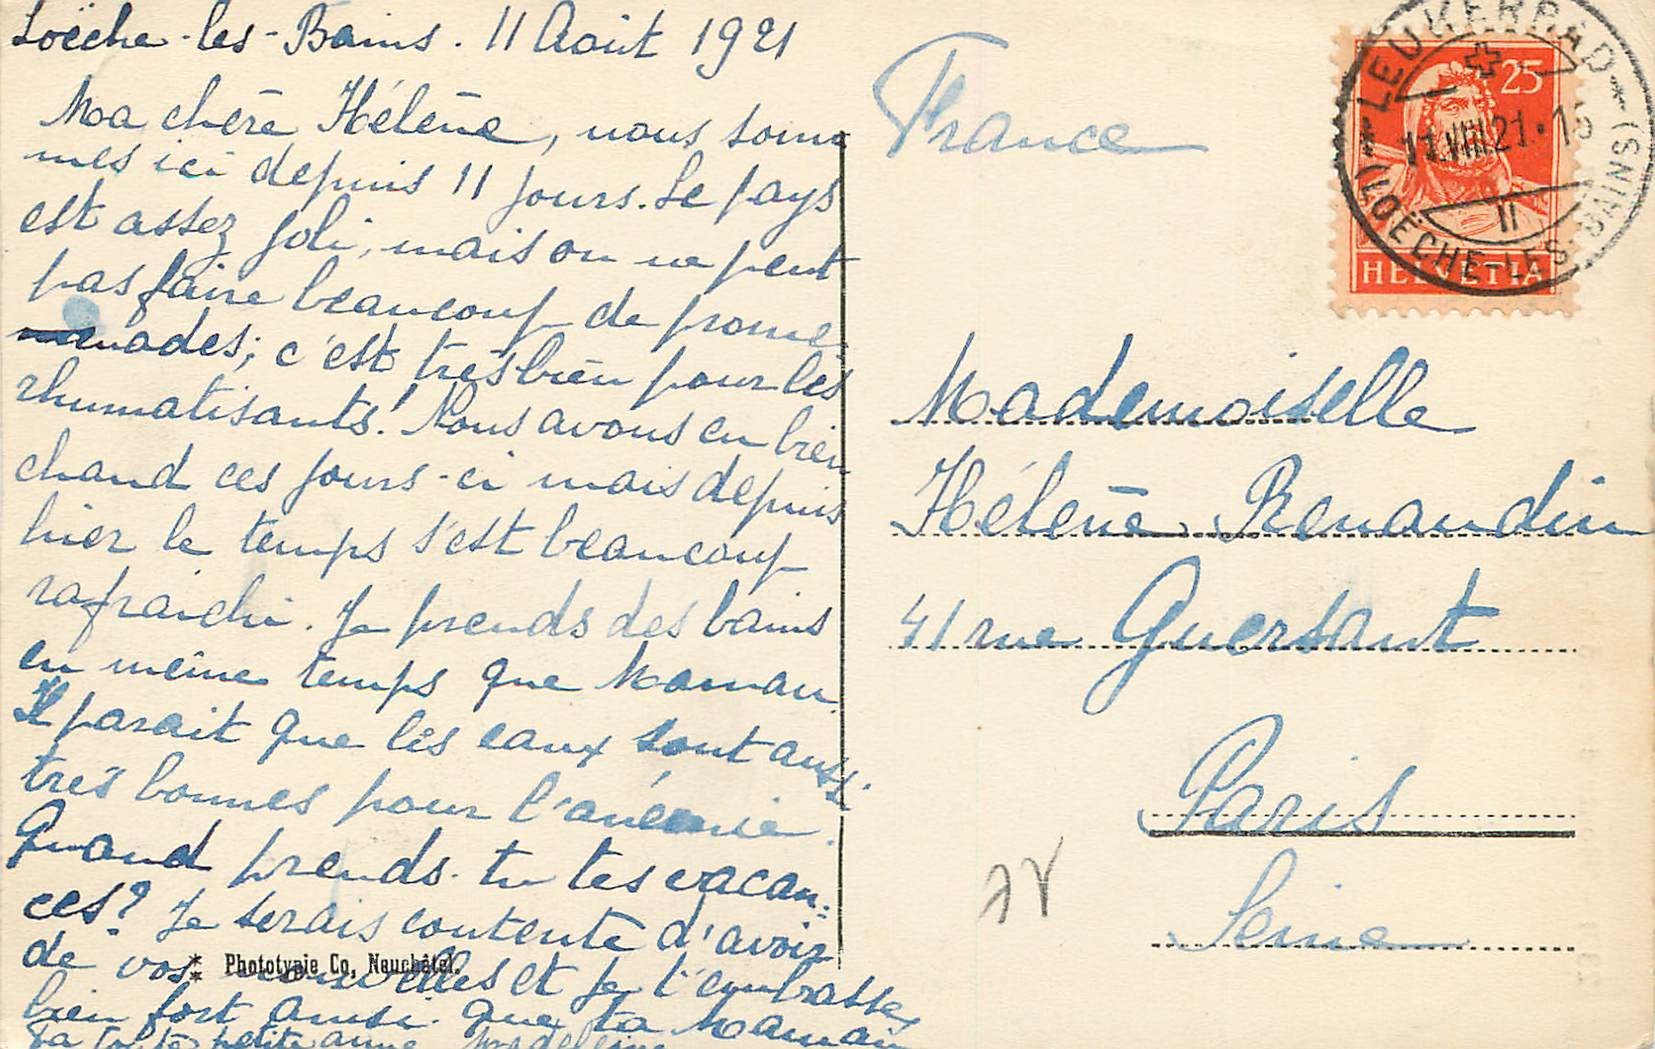 Loëche-les-Bains. 11 Août 1921
Ma chère Hélène, nous som
mes ici depuis 11 jours. Le pays
est assez joli, mais on ne peut
pas faire beaucoup de prome-
nades; c'est très bien pour les
rhumatisants! Nous avons eu bien
chaud ces jours-ci mais depuis
hier le temps s'est beaucoup
rafraichi. Je prends des bains
en même temps que Maman.
Il parait que les eaux sont aussi
très bonnes pour l'anémie.
Quand prends-tu tes vacan-
ces? Je serais contente d'avoir
de vos nouvelles et je t'embrasse
bien fort ainsi que ta Maman
Ta toute petite amie Madeleine
Phototypie Co, Neuchâtel.
France
LEUKERBAD
(LOËCHE-LES-BAINS)
11.VIII.21.
II
25
HELVETIA
Mademoiselle
Hélène Renaudin
41 rue Guersant
Paris
Seine